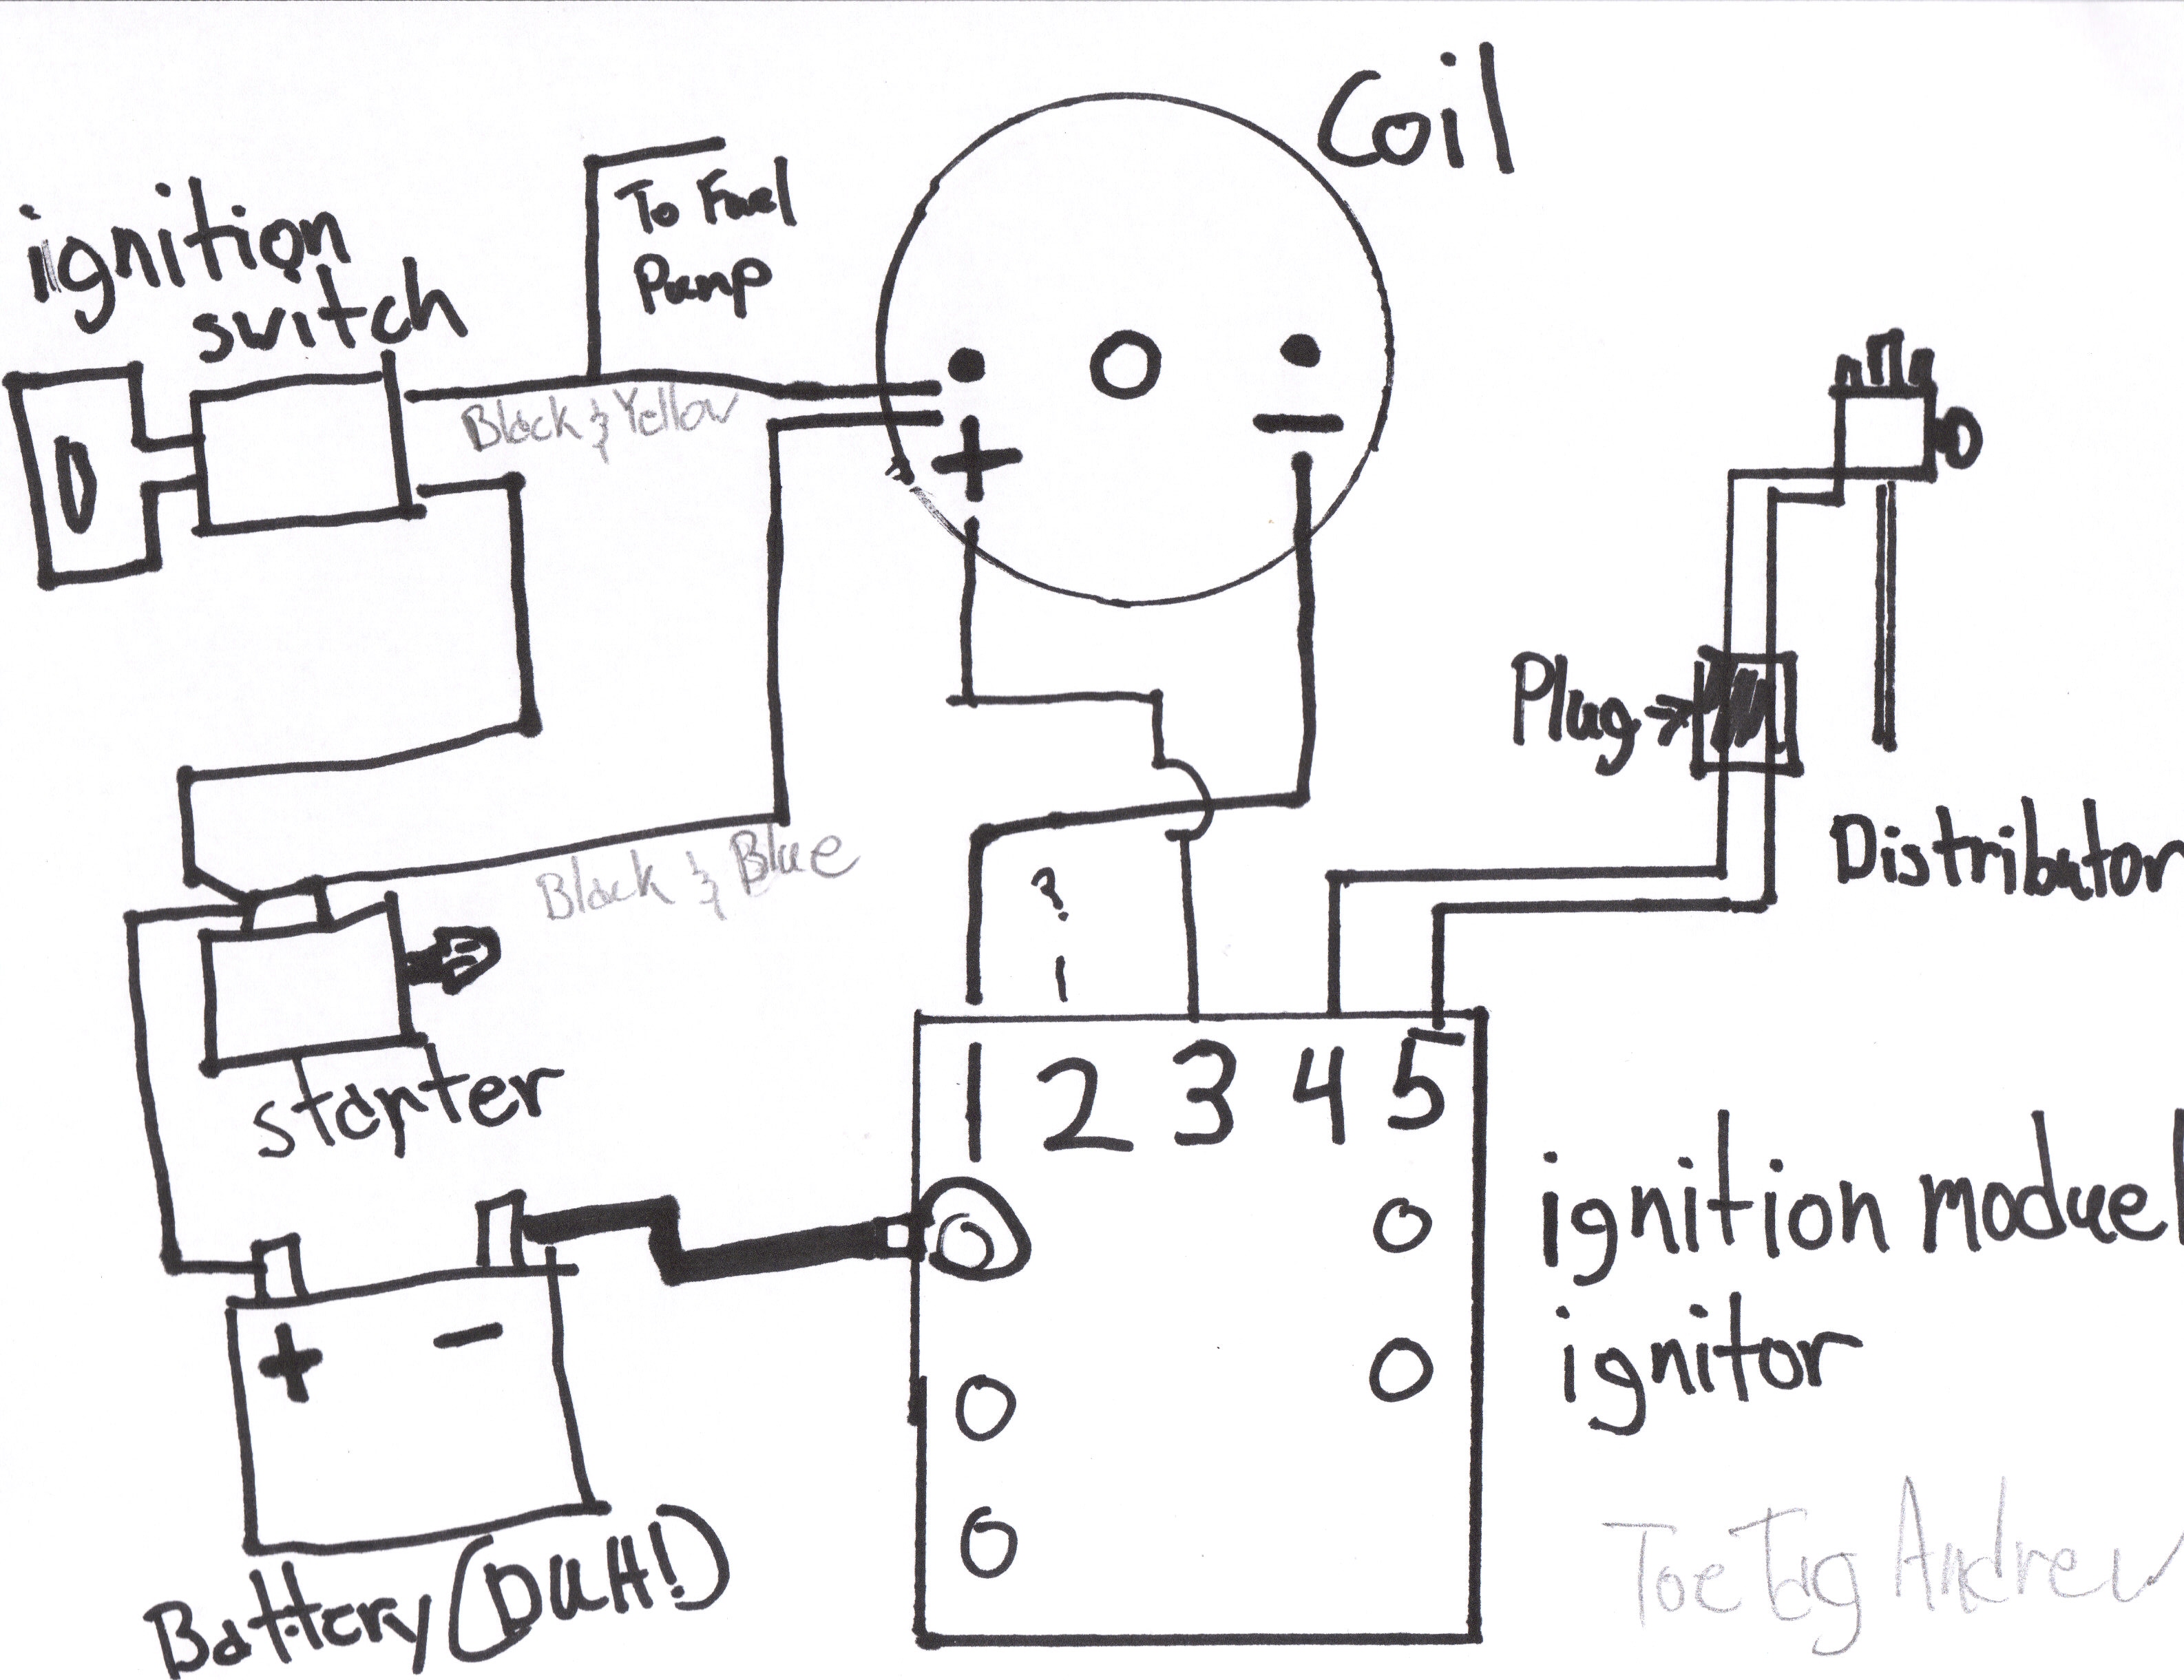 Coil
To Fuel
Pump
ignition
switch
Black & Yellow
+
−
Plug→
Distributor
Black & Blue
?
1 2 3 4 5
starter
ignition moduel
ignitor
+ −
Battery (DUH!)
Toe Tag Andrew